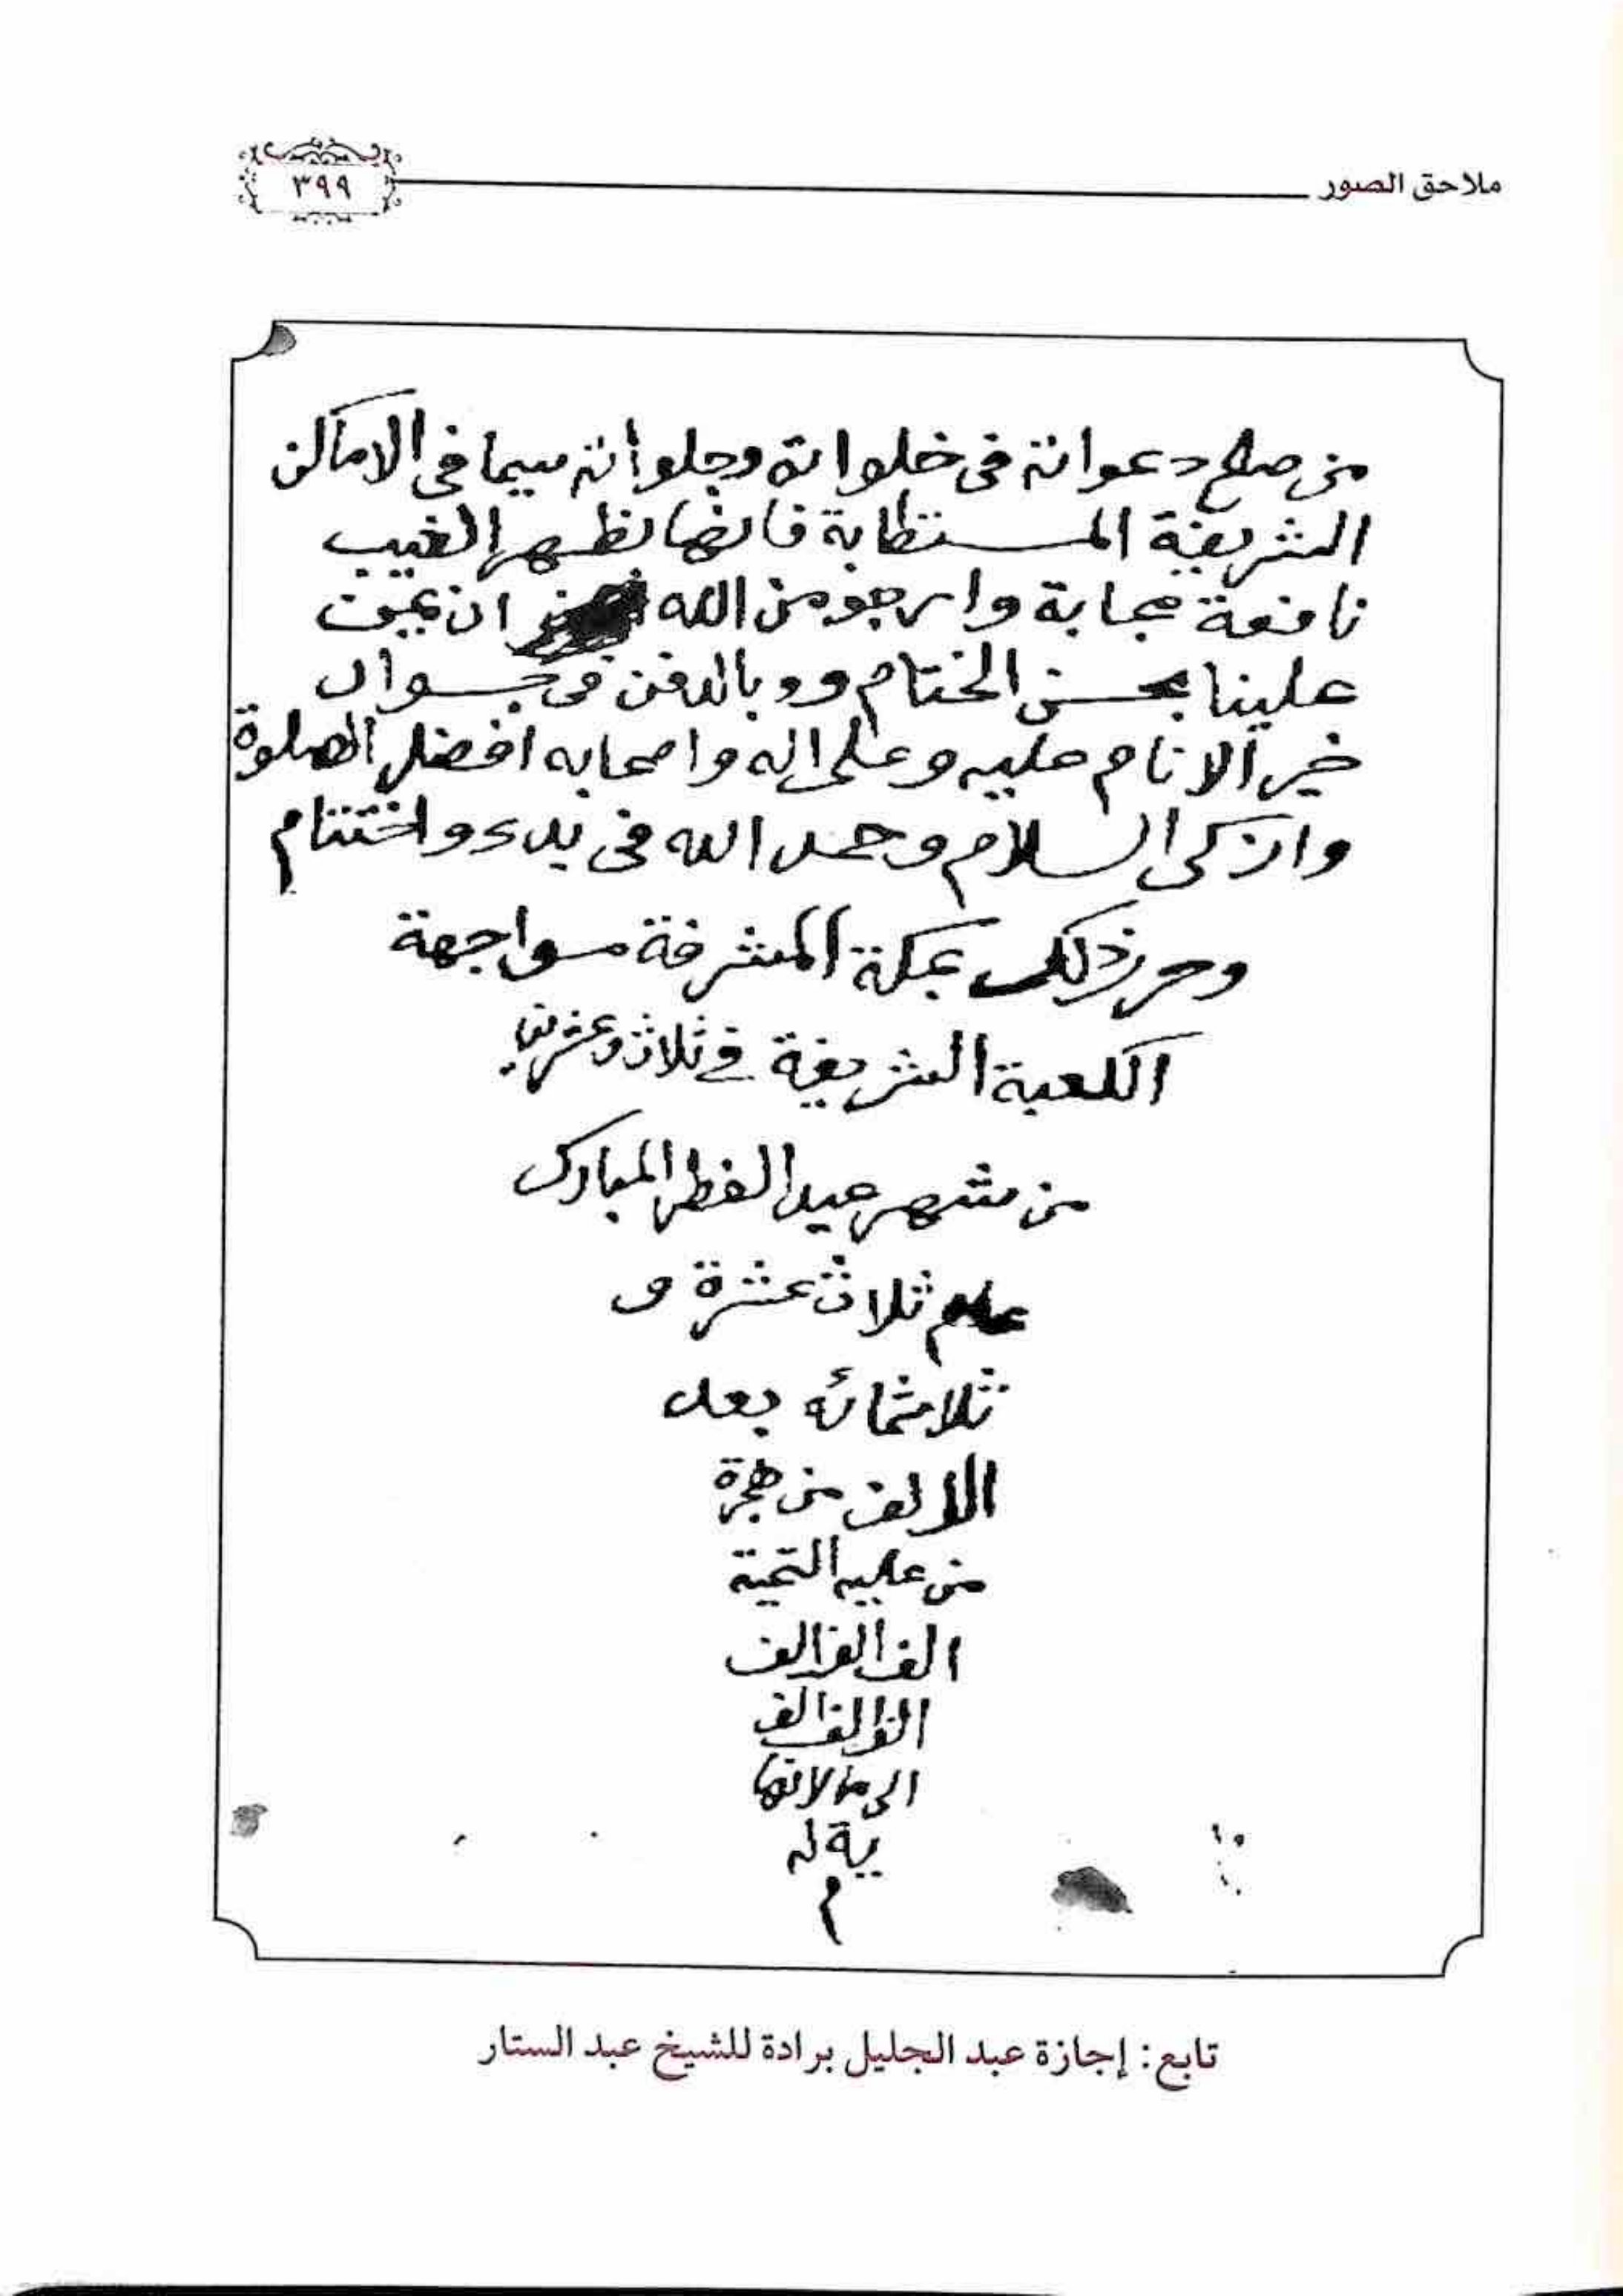 ملاحق الصور
٣٩٩
من صالح دعواته فى خلواته وجلواته سيما فى الاماكن
الشريفة المستطابة فانها بظهر الغيب
نافعة مجابة وارجو من الله ان يمن
علينا بحسن الختام وبالدفن فى جوار
خير الانام عليه وعلى اله واصحابه افضل الصلوة
وازكى السلام وحمد الله فى بدء واختتام
وحرر ذلك بمكة المشرفة مواجهة
الكعبة الشريفة فى ثلاث وعشرين
من شهر عيد الفطر المبارك
عام ثلاث عشرة و
ثلاثمائه بعد
الالف من هجرة
من عليه التحية
الف الف الف
الف الف الف
الى ما لا نها
ية له
م
تابع: إجازة عبد الجليل برادة للشيخ عبد الستار